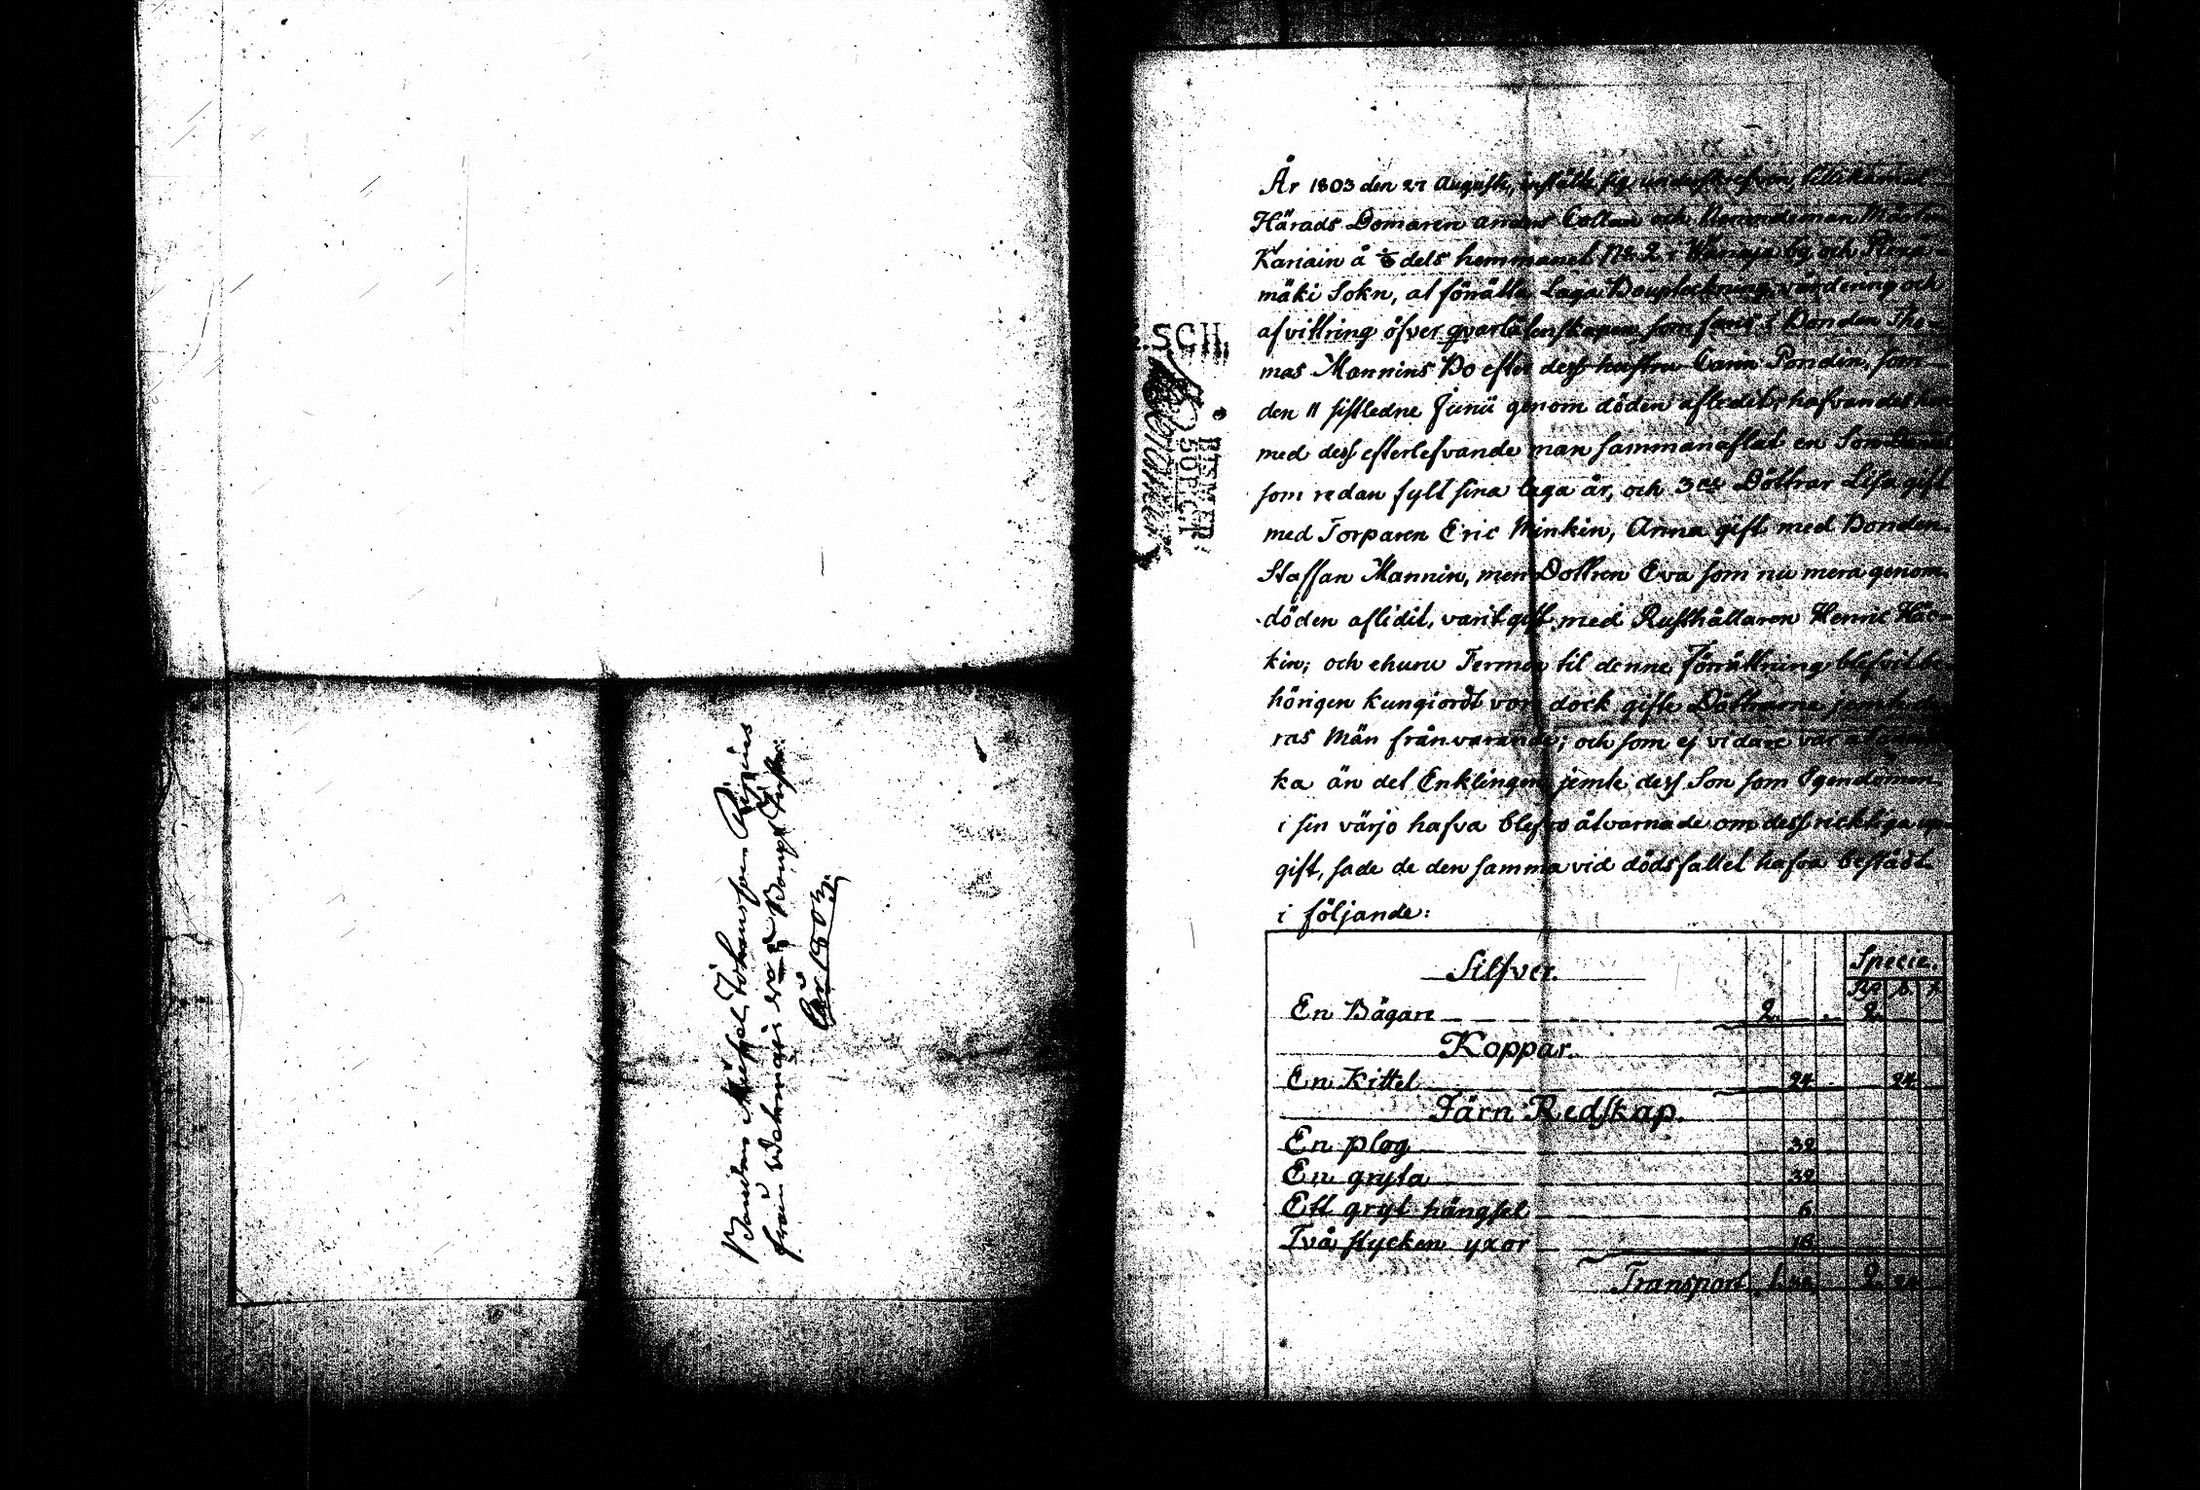 Bonden Mickel Johansson Rysius
från Wehmais
År 1803.
År 1803 den 27 Augusti, instälte sig undertecknan
Härads Domaren anders Collan och Nemndeman Mårten
Kariain å dels hemmanet No. 2 i Wanaja by och Pirra-
mäki Sokn, at förrätta Laga Bouptekning, värdering och
afvittring öfver qvarlåtenskapen som fans i Bonden Tho-
mas Mannins Bo efter dess hustru Carin Pondin, som
den 11 sistledne Junii genom döden afledit, hafvandes hon
med dess efterlefvande man sammanaflat en Son
som redan fylt sina laga år, och 3ne Döttrar Lisa gift
med Torparen Eric Minkin, Anna gift med Bonden
Staffan Mannin, men Dottren Eva som nu mera genom
döden aflidit, varit gift med Rusthållaren Henric Häc-
kin; och ehuru Termen til denne Förrättning blefvit be-
hörigen kungiordt voro dock gifte Döttrarne jemte de-
ras Män frånvarande; och som ej vidare var
ka än det Enklingen jemte dess Son som Egendomen
i sin värjo hafva blefvo åtvarnade om dess ricktiga up-
gift, sade de den samma vid dödsfallet hafva bestådt
i följande:
Silfver. Specie.
En Bägare 2. 2.
Koppar.
En Kittel 24 24
Järn Redskap.
En plog 32
En gryta 32
Ett gryt hängsel 6
Två stycken yxor 16
Transport 1. 2. 24